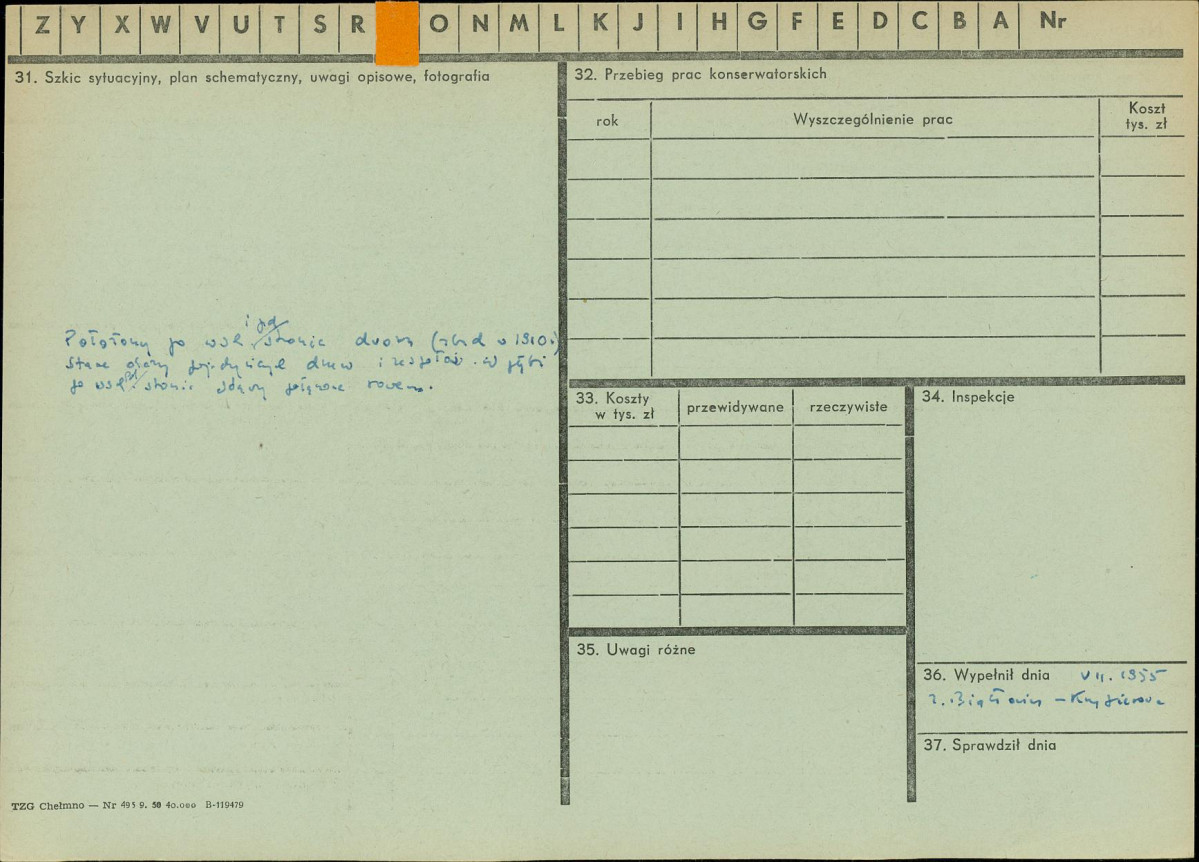 Z Y X W V U T S R O N M L K J I H G F E D C B A Nr
31. Szkic sytuacyjny, plan schematyczny, uwagi opisowe, fotografia
i płd
Położony po wsch stronie dworu (zbud w 1910.)
Stare okazy pojedynczych drzew i zespołów. W głębi
po wsch. stronie stawy połączone rowem.
32. Przebieg prac konserwatorskich
rok Wyszczególnienie prac Koszt
tys. zł
33. Koszty
w tys. zł przewidywane rzeczywiste
34. Inspekcje
35. Uwagi różne
36. Wypełnił dnia VII. 1955
37. Sprawdził dnia
TZG Chełmno — Nr 495 9. 58 40.000 B-119479